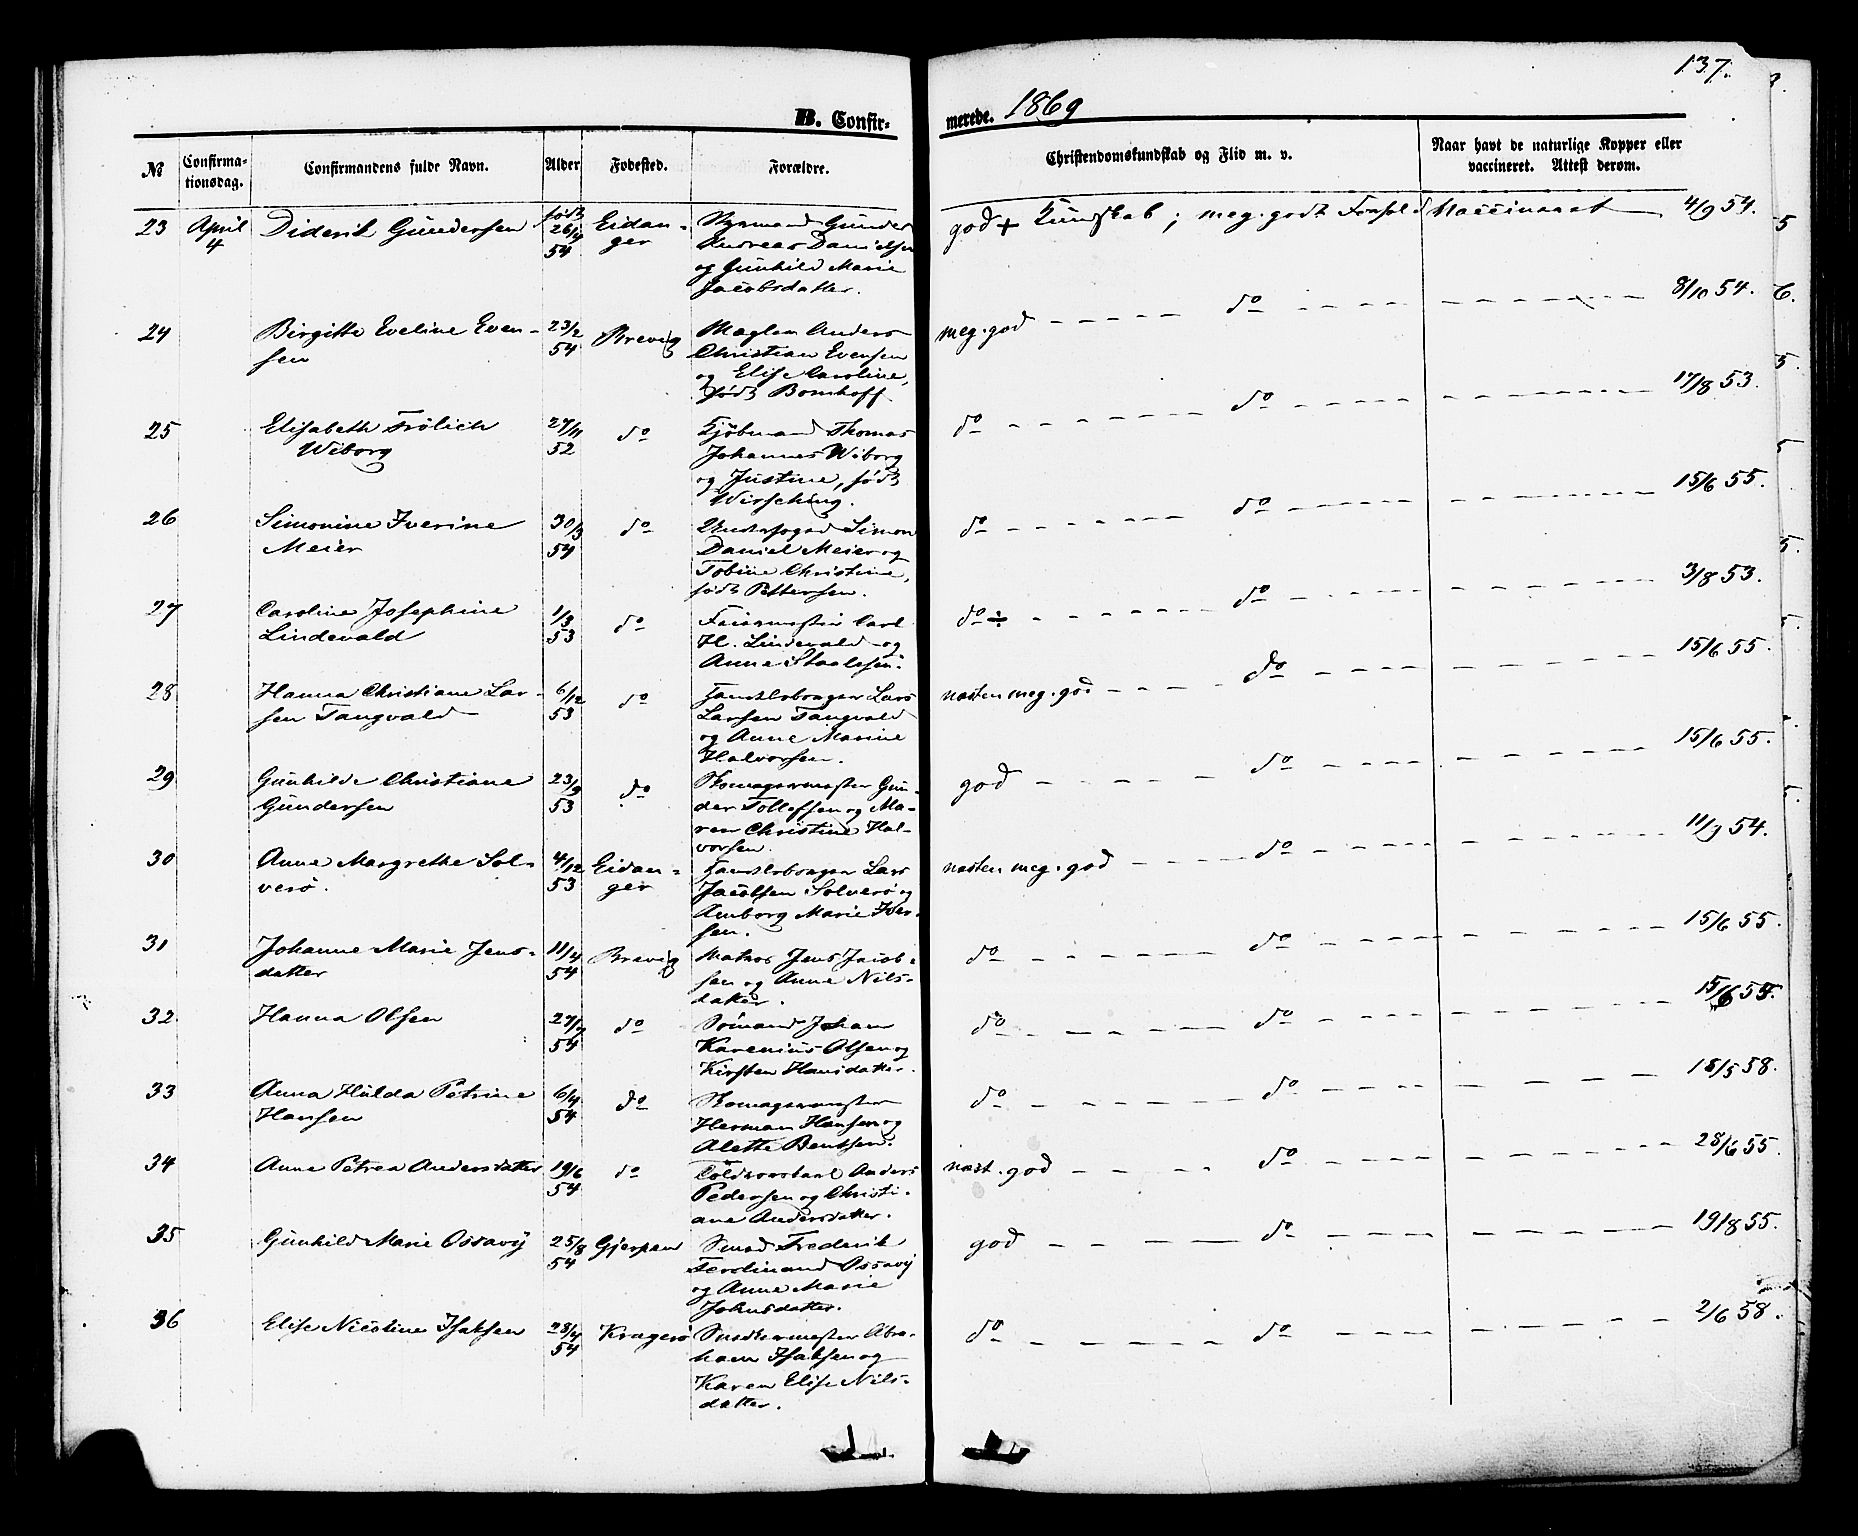 137.
B. Confir-
merede. 1869
№
Confirma-
tionsdag.
Confirmandens fulde Navn.
Alder
Fødested.
Forældre.
Christendomskundskab og Flid m. v.
Naar havt de naturlige Kopper eller
vaccineret. Attest derom.
23 April 4
Diderik Gundersen
født 26/4 54
Eidan-
ger
Styrmand Gunder
Andreas Danielsen
og Gunhild Marie
Jacobsdatter.
god + Kundskab; meg. godt Forhold
Vaccineret 4/9 54.
24
Birgitte Eveline Even-
sen
23/2 54
Brevig
Mægler Anders
Christian Evensen
og Elise Caroline,
født Bomhoff.
meg. god do 8/10 54.
25
Elisabeth Frölich
Wiborg
27/11 52
do
Kjøbmand Thomas
Johannes Wiborg
og Justine, født
Wirsching.
do do 17/8 53.
26
Simonine Iverine
Meier
30/3 54
do
Underfoged Simon
Daniel Meier og
Tobine Christine,
født Pettersen.
do do 15/6 55.
27
Caroline Josephine
Lindevald
1/3 53
do
Feiermester Carl
H. Lindevald og
Anne Staalesen.
do ÷ do 3/8 53.
28
Hanna Christiane Lar-
sen Tangvald
6/12 53
do
Lars
Larsen Tangvald
og Anne Marine
Halvorsen.
næsten meg. god do 15/6 55.
29
Gunhilde Christiane
Gundersen
23/9 53
do
Skomagermester Gun-
der Tollefsen og Ma-
ren Christine Hal-
vorsen.
god do 15/6 55.
30
Anne Margrethe Sol-
verö.
4/12 53
Eidan-
ger
Lars
Jacobsen Solverö og
Amborg Marie Iver-
sen.
næsten meg. god do 11/9 54.
31
Johanne Marie Jens-
datter
11/4 54
Brevig
Matros Jens Jacob-
sen og Anne Nils-
datter.
do do 15/6 55.
32
Hanna Olsen
27/7 54
do
Sömand Johan
Karenius Olsen og
Kirsten Hansdatter.
do do 15/6 55.
33
Anna Hulda Petrine
Hansen
6/4 54
do
Skomagermester
Herman Hansen og
Alette Bentsen.
do do 18/5 58.
34
Anne Petrea Andersdatter
19/6 54
do
Anders
Pedersen og Christi-
ane Andersdatter.
næst. god do 28/6 55.
35
Gunhild Marie Ossavy
25/8 54
Gjerpen
Smed Frederik
Ferdinand Ossavy
og Anne Marie
Johnsdatter.
god do 19/8 55.
36
Elise Nicoline Isaksen
28/4 54
Kragerö
Snedkermester Abra-
ham Isaksen og
Karen Elise Nils-
datter.
do do 2/6 58.